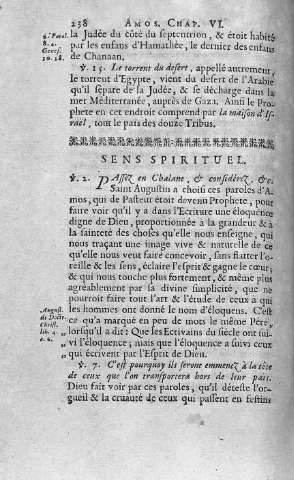 238 AMOS. CHAP. VI.
2. Paral.
8. 2.
Genes.
10. 18.
la Judée du côté du septentrion, & étoit habité
par les enfans d'Hamathée, le dernier des enfans
de Chanaan.
℣. 15. Le torrent du desert, appellé autrement,
le torrent d'Egypte, vient du desert de l'Arabie
qu'il sépare de la Judée, & se décharge dans la
mer Méditerranée, auprès de Gaza. Ainsi le Pro-
phete en cet endroit comprend par la maison d'Is-
rael, tout le païs des douze Tribus.
SENS SPIRITUEL.
℣. 2. PAssez en Chalane, & considérez, &c.
Saint Augustin a choisi ces paroles d'A-
mos, qui de Pasteur étoit devenu Prophete, pour
faire voir qu'il y a dans l'Ecriture une éloquence
digne de Dieu, proportionnée à la grandeur & à
la sainteté des choses qu'elle nous enseigne, qui
nous traçant une image vive & naturelle de ce
qu'elle nous veut faire concevoir, sans flatter l'o-
reille & les sens, éclaire l'esprit & gagne le cœur;
& qui nous touche plus fortement, & même plus
agréablement par sa divine simplicité, que ne
pourroit faire tout l'art & l'étude de ceux à qui
les hommes ont donné le nom d'éloquens. C'est
ce qu'a marqué en peu de mots le même Pére,
August.
de Doctr.
Christ.
lib. 4.
c. 6.
lorsqu'il a dit: Que les Ecrivains du siecle ont sui-
vi l'éloquence; mais que l'éloquence a suivi ceux
qui écrivent par l'Esprit de Dieu.
℣. 7. C'est pourquoy ils seront emmenez à la tête
de ceux que l'on transportera hors de leur païs.
Dieu fait voir par ces paroles, qu'il déteste l'or-
gueil & la cruauté de ceux qui passent en festins